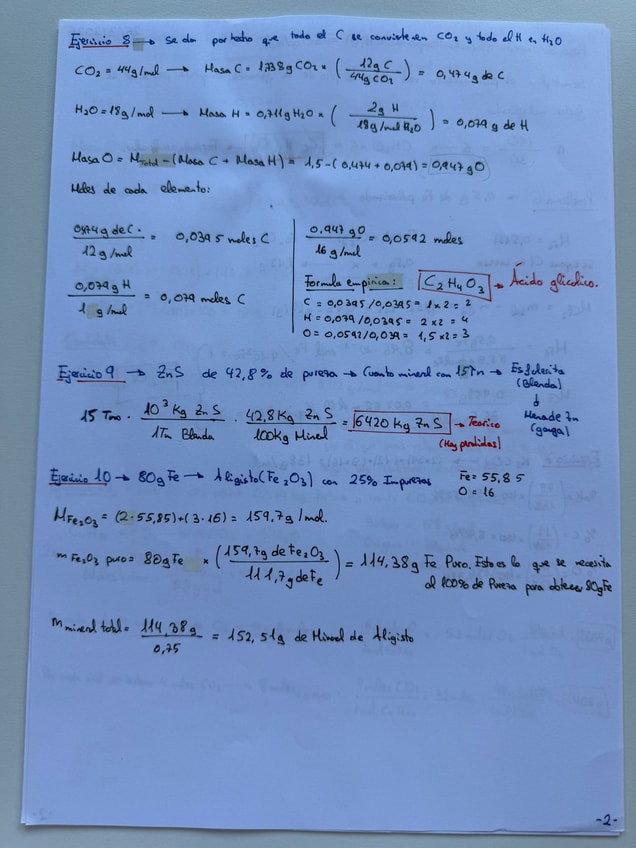 Ejercicio 8 → Se da por hecho que todo el C se convierte en CO₂ y todo el H en H₂O
CO₂ = 44g/mol → Masa C = 1,738g CO₂ × (12g C / 44g CO₂) = 0,474g de C
H₂O = 18g/mol → Masa H = 0,711g H₂O × (2g H / 18g/mol H₂O) = 0,079 g de H
Masa O = M Total - (Masa C + Masa H) = 1,5 - (0,474 + 0,079) = 0,947gO
Moles de cada elemento:
0,474 g de C / 12 g/mol = 0,0395 moles C
0,079g H / 1 g/mol = 0,079 moles C
0,947 gO / 16 g/mol = 0,0592 moles
Formula empírica: C₂H₄O₃ → Ácido glicólico.
C = 0,0395/0,0395 = 1 x 2 = 2
H = 0,079/0,0395 = 2 x 2 = 4
O = 0,0592/0,039 = 1,5 x 2 = 3
Ejercicio 9 → ZnS de 42,8% de pureza → Cuanto mineral con 15Tn → Esfalerita
(Blenda)
↓
Mena de Zn
(ganga)
15 Tno · 10³ Kg ZnS / 1Tn Blenda · 42,8 Kg ZnS / 100Kg Mineral = 6420 Kg ZnS → Teorico
(Hay perdidas)
Ejercicio 10 → 80g Fe → Aligisto (Fe₂O₃) con 25% Impurezas
Fe = 55,85
O = 16
M Fe₂O₃ = (2·55,85)+(3·16) = 159,7g/mol.
m Fe₂O₃ puro = 80gFe × (159,7g de Fe₂O₃ / 111,7g de Fe) = 114,38g Fe Puro. Esto es lo que se necesita
al 100% de Pureza para obtener 80gFe
m mineral total = 114,38g / 0,75 = 152,51g de Mineral de Aligisto
-2-